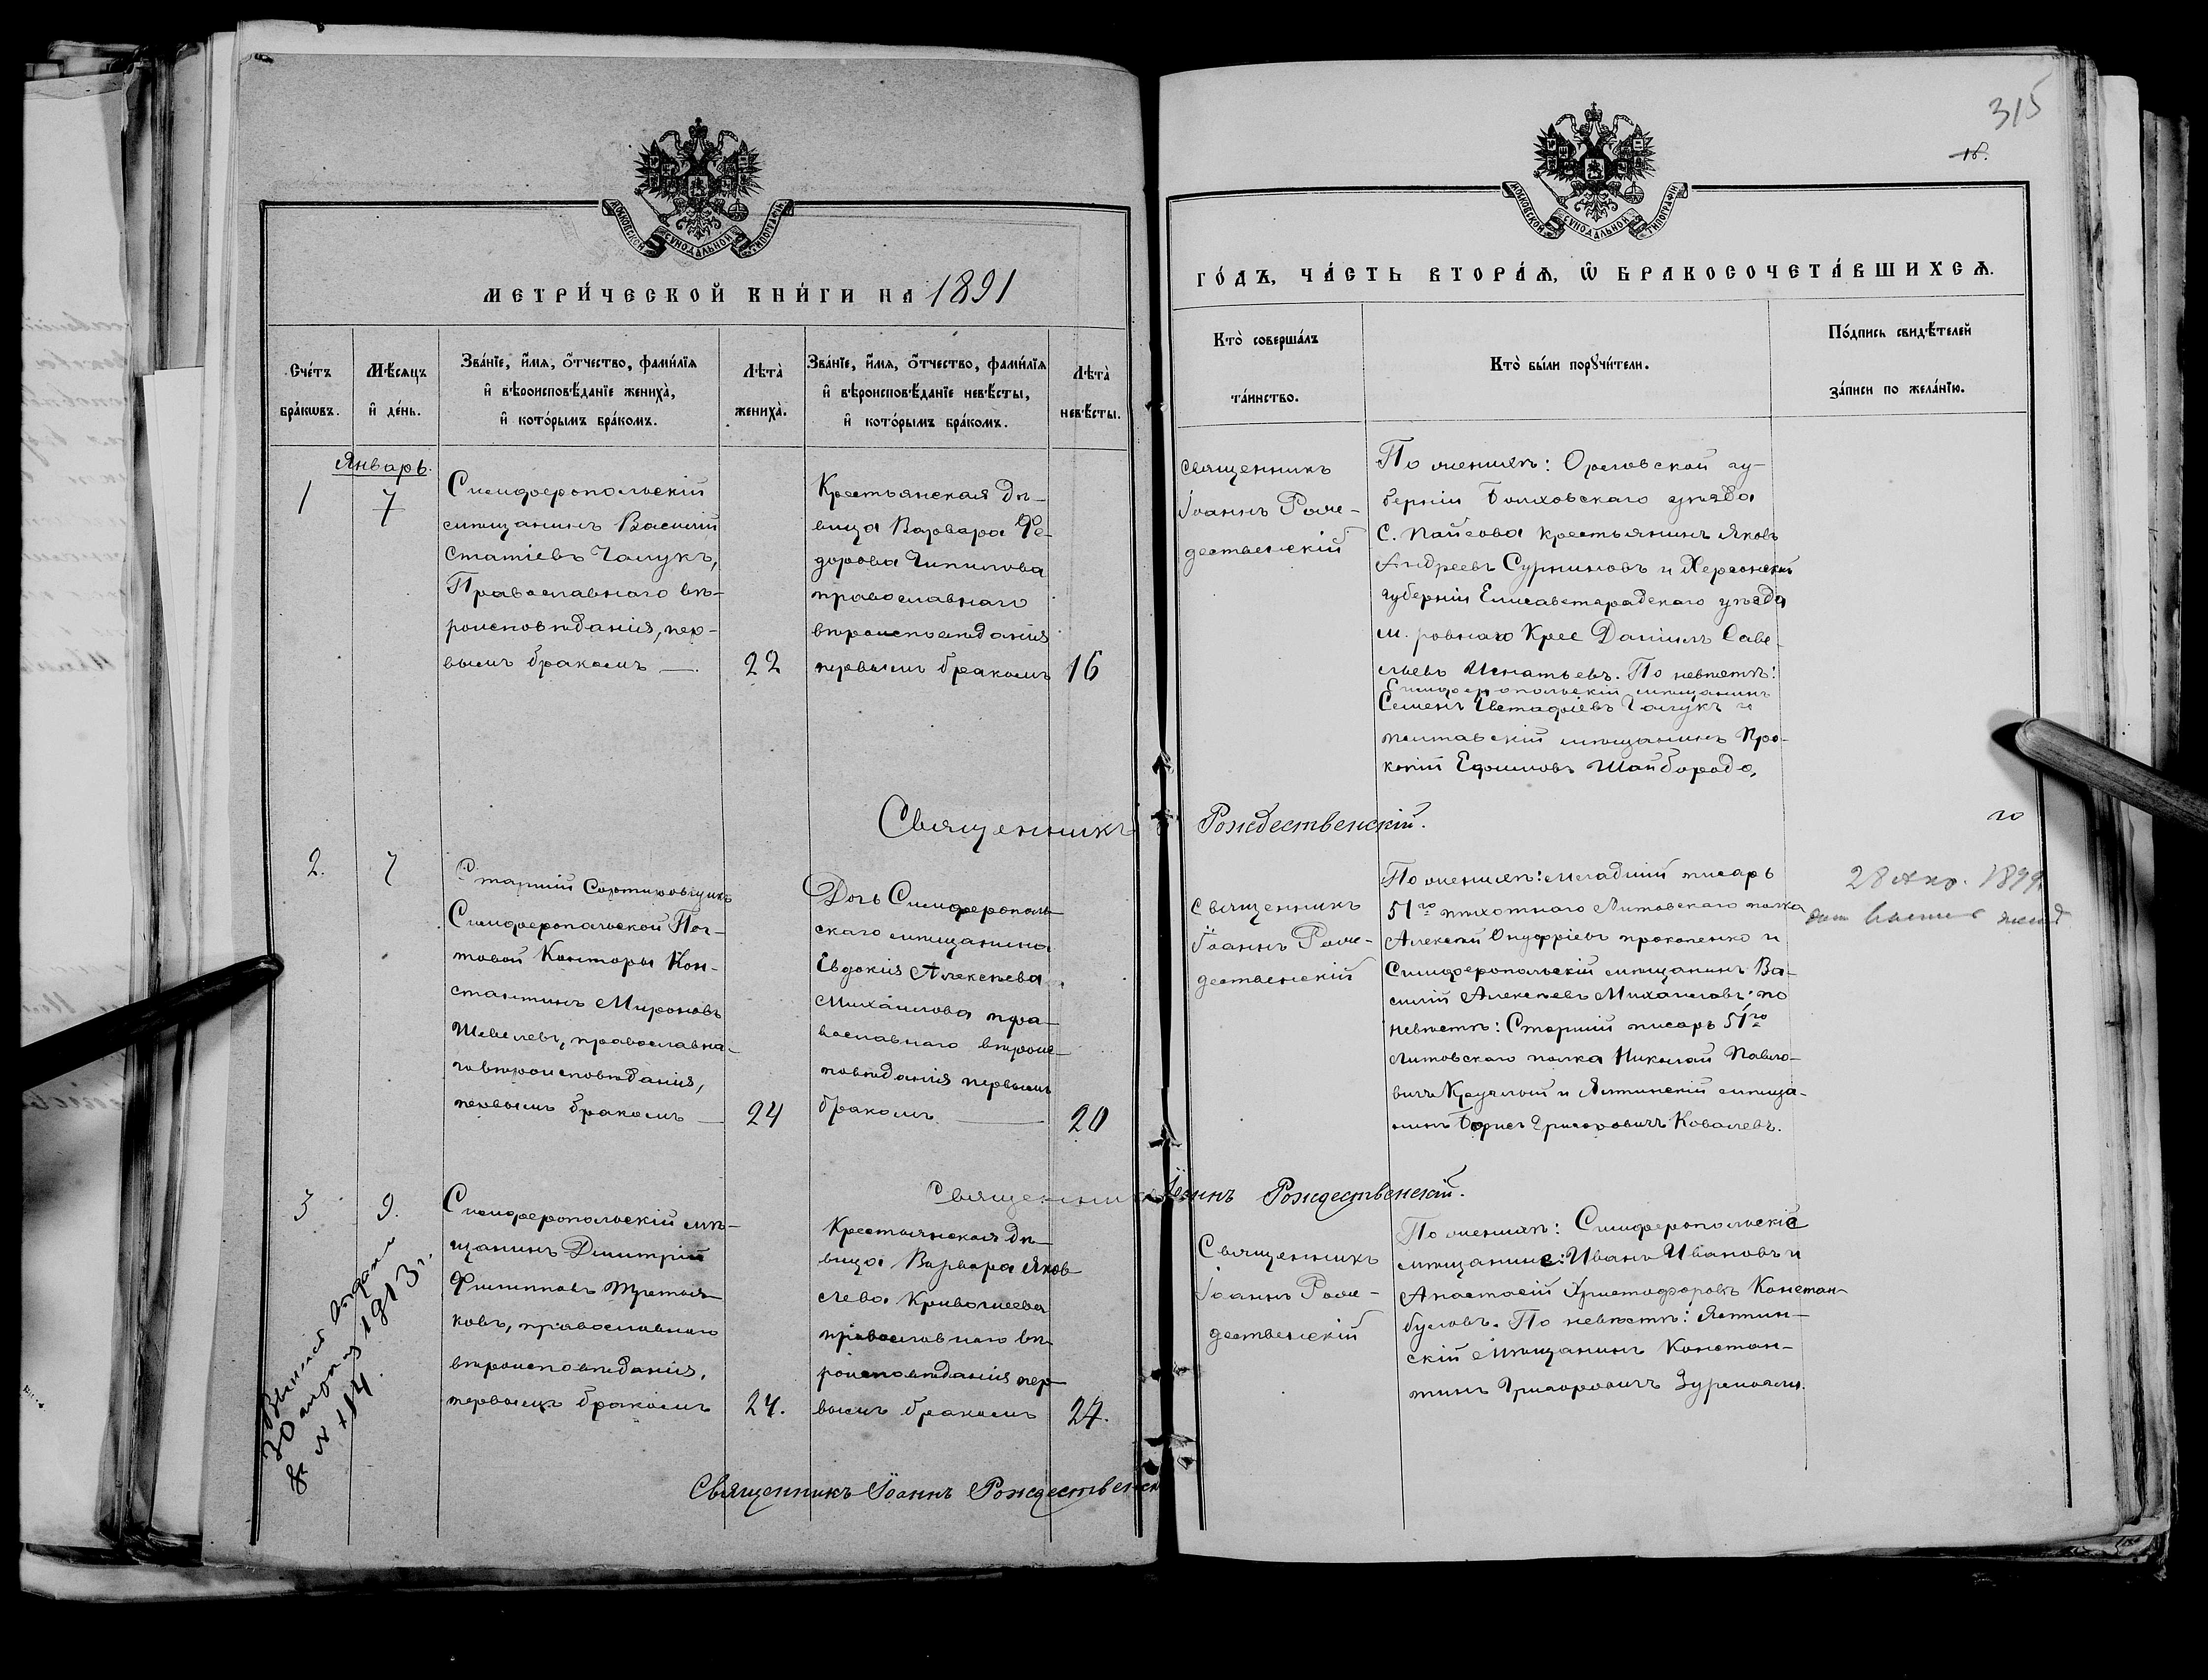 315
18.
МОСКОВСКОЙ СУНОДАЛЬНОЙ ТИПОГРАФІИ
МОСКОВСКОЙ СУНОДАЛЬНОЙ ТИПОГРАФІИ
МЕТРИ́ЧЕСКОЙ КНИ́ГИ НА 1891
ГО́ДЪ, ЧА́СТЬ ВТОРА́Ѧ, Ѿ БРАКОСОЧЕТА́ВШИХСѦ.
Сче́тъ
бра́кѡвъ.
Мѣ́сѧцъ
и҆ де́нь.
Зва́нїе, и҆́мѧ, ѻ҆́тчество, фами́лїѧ
и҆ вѣроисповѣ́данїе женихà,
и҆ кото́рымъ бра́комъ.
Лѣ́та̀
жениха̀.
Зва́нїе, и҆́мѧ, ѻ҆́тчество, фами́лїѧ
и҆ вѣроисповѣ́данїе невѣ́сты,
и҆ кото́рымъ бра́комъ.
Лѣ́та̀
невѣ́сты.
Кто̀ соверша́лъ
та́инство.
Кто̀ бы́ли порꙋчи́тели.
По́дпись свидѣ́телей
за́писи по жела́нїю.
Январь.
1
7
Симферопольскій
мѣщанинъ Василій
Статіевъ Галукъ,
Православнаго вѣ-
роисповѣданія, пер-
вымъ бракомъ —.
22
Крестьянская дѣ-
вица Варвара Фе-
дорова Чипилова
православнаго
вѣроисповѣданія
первымъ бракомъ
16
Священникъ
Іоаннъ Рож-
дественскій
По женихѣ: Орловской гу-
берніи Болховскаго уѣзда
С. Пайсова крестьянинъ Яковъ
Андреевъ Сурниновъ и Херсонской
губерніи Елисаветградскаго уѣзда
м. ровнаго Крес Даніилъ Саве-
льевъ Игнатьевъ. По невѣстѣ:
Симферопольскій мѣщанинъ
Семенъ Евстафіевъ Галукъ и
полтавскій мѣщанинъ Про-
копій Ефимовъ Шайборода,
Священникъ Рождественскій.
2.
7
Старшій Сортировщикъ
Симферопольской Поч-
товой Конторы Кон-
стантинъ Мироновъ
Шевелевъ, православна-
го вѣроисповѣданія,
первымъ бракомъ —
24
Дочь Симферополь-
скаго мѣщанина
Евдокія Алексѣева
Михаилова пра-
вославнаго вѣроис-
повѣданія первымъ
бракомъ —
20
Священникъ
Іоаннъ Рож-
дественскій
По женихѣ: младшій писарь
51го пѣхотнаго Литовскаго полка
Алексѣй Онуфріевъ прокопенко и
Симферопольскій мѣщанинъ Ва-
силій Алексѣевъ Михаиловъ: по
невѣстѣ: Старшій писарь 51го
Литовскаго полка Николай Павло-
вичъ Круглый и Ялтинскій мѣща-
нинъ Борисъ Григоровичъ Ковалевъ.
28 1899
Священникъ Іоаннъ Рождественскій.
3
9.
Симферопольскій мѣ-
щанинъ Димитрій
Филипповъ Третья-
ковъ, православнаго
вѣроисповѣданія,
первымъ бракомъ
24.
Крестьянская дѣ-
вица Варвара Яков-
лева Кривошеева
православнаго вѣ-
роисповѣданія пер-
вымъ бракомъ
24.
Священникъ
Іоаннъ Рож-
дественскій
По женихѣ: Симферопольскіе
мѣщанине: Иванъ Ивановъ и
Анастасій Христофоровъ Констан-
буловъ. По невѣстѣ: Ялтин-
скій мѣщанинъ Констан-
тинъ Григоровичъ
30 1913 г.
за № 114.
Священникъ Іоаннъ Рождественск